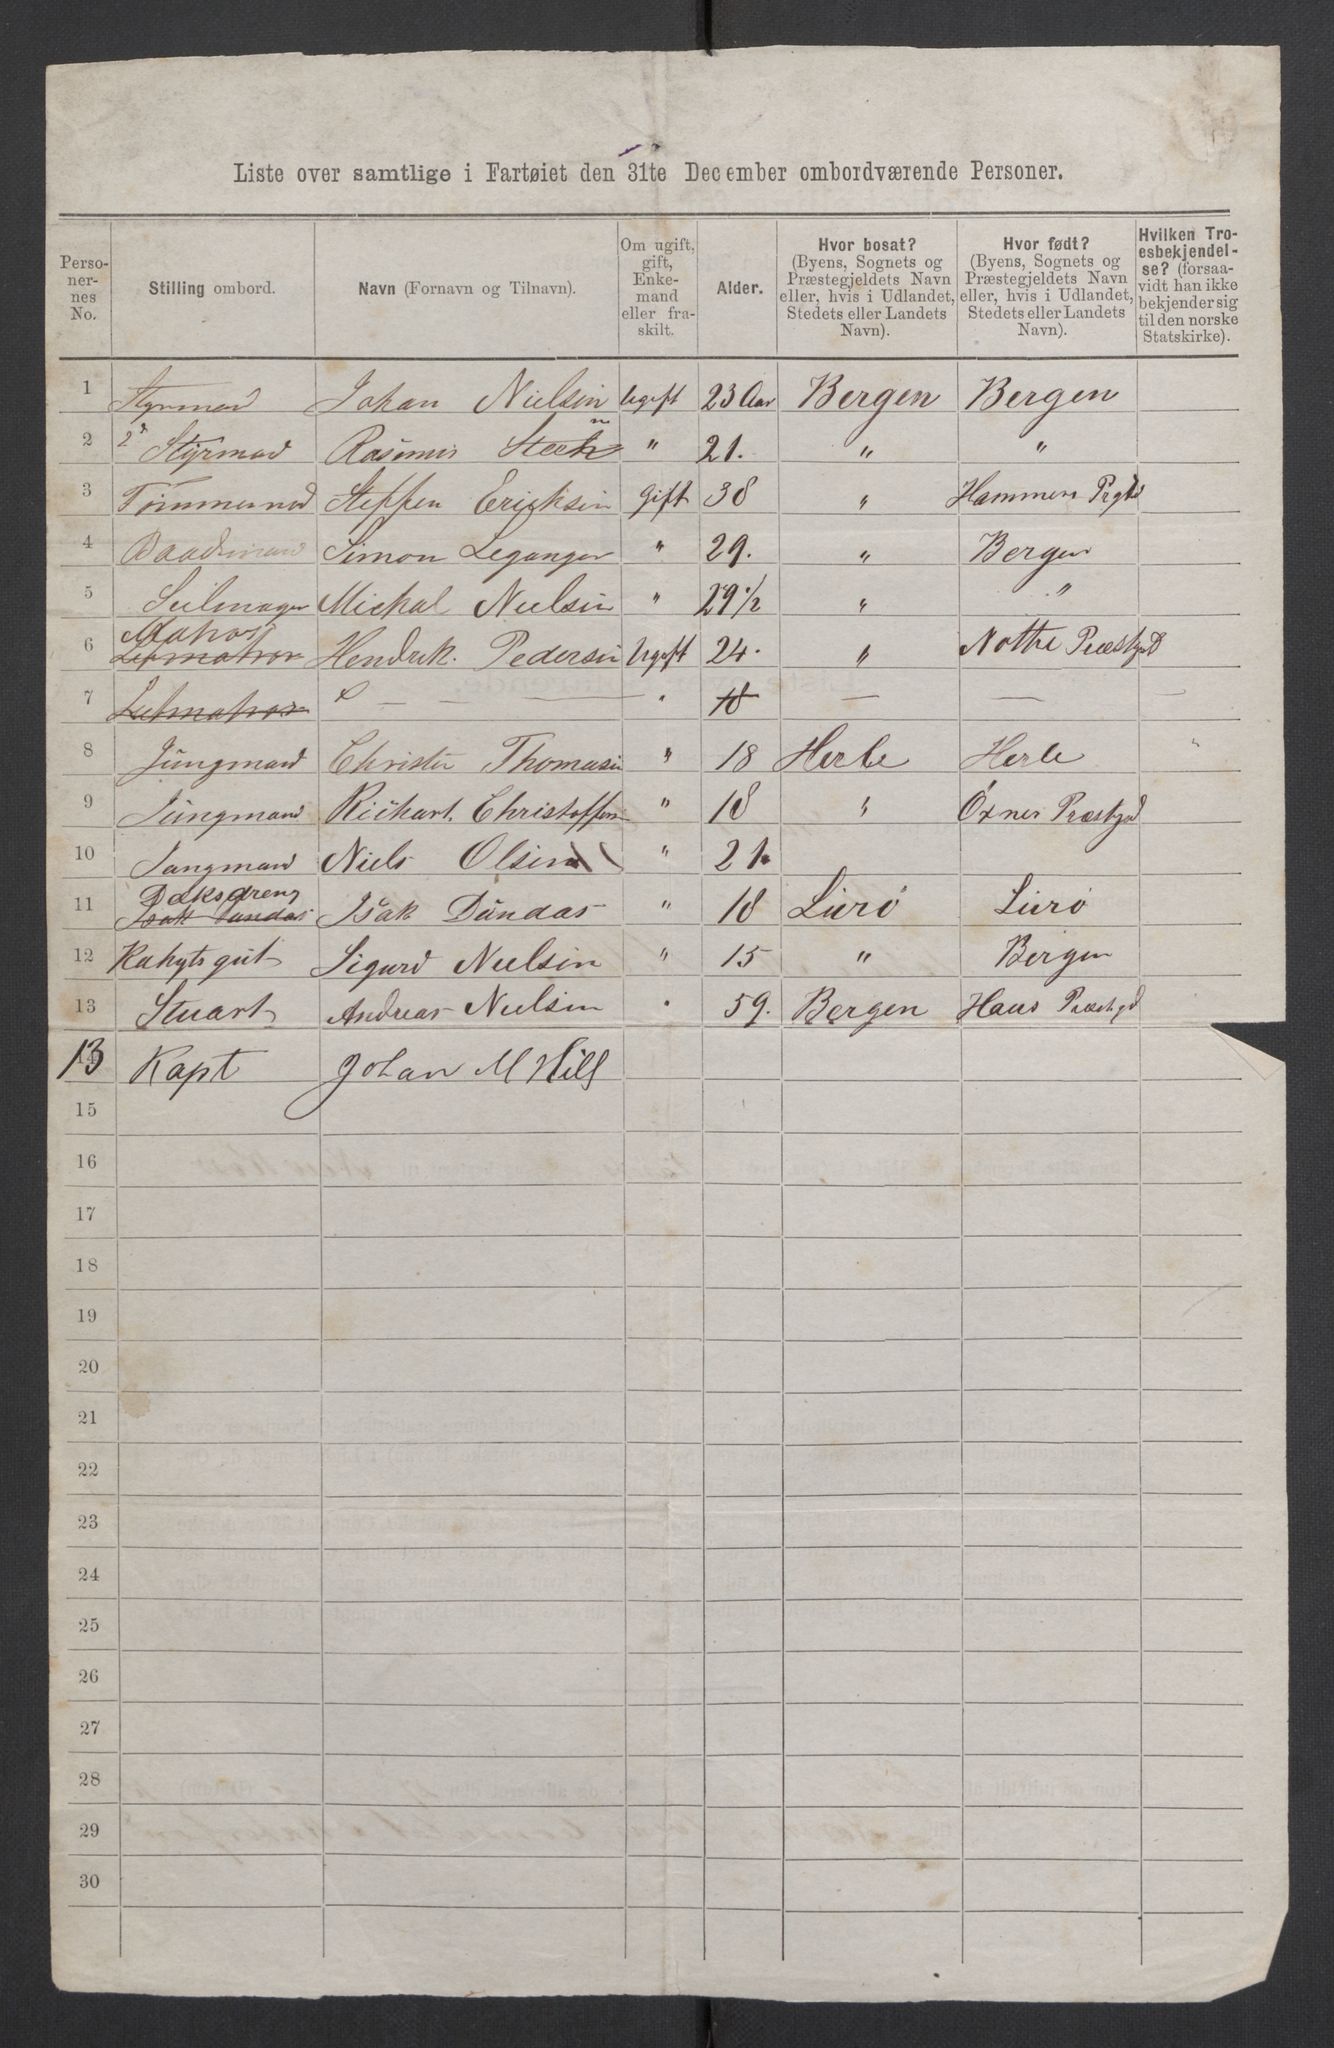 Liste over samtlige i Fartøiet den 31te December ombordværende Personer.
Perso-
ner-
nes
No.
Stilling ombord.
Navn (Fornavn og Tilnavn).
Om ugift,
gift,
Enke-
mand
eller fra-
skilt.
Alder.
Hvor bosat?
(Byens, Sognets og
Præstegjeldets Navn
eller, hvis i Udlandet,
Stedets eller Landets
Navn).
Hvor født?
(Byens, Sognets og
Præstegjeldets Navn
eller, hvis i Udlandet,
Stedets eller Landets
Navn).
Hvilken Tro-
esbekjendel-
se? (forsaa-
vidt han ikke
bekjender sig
til den norske
Statskirke).
1 Styrmand Johan Nielsen Ugift 23 Aar Bergen Bergen
2 2d Styrmad Rasmus " 21. " "
3 Tömmermad Steffen Ericksen Gift 38 " Hammers
4 Baadsmand Simon Leganger " 29. " Bergen
5 Seilmager Michal Nielsen " 29 1/2 " "
6 Matros Letmatros Hendrik. Pedersen Ugift 24. "
7 Letmatros — — — " 18 — — —
8 Jungmand Christen Thomasen " 18 Herle Herle "
9 Jungmand Richart Christoffersen " 18 "
10 Jungmand Niels Olsen " 21.
11 Deksdreng Isak Dundas Isak Dundas " 18 Lurö Lurö
12 Kahytsgut Sigurd Nielsen " 15 " Bergen
13 Stuart Andreas Nielsen " 59. Bergen Haus
13 14 Kapt Johan M Hill
15
16
17
18
19
20
21
22
23
24
25
26
27
28
29
30